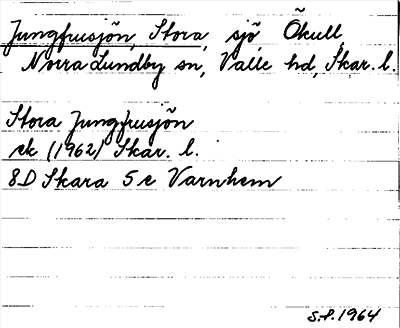 Jungfrusjön, Stora, sjö, Ökull,
Norra Lundby sn, Valle hd, Skar. l.
Stora Jungfrusjön
ek (1962) Skar. l.
8D Skara 5 e Varnhem
S.P. 1964